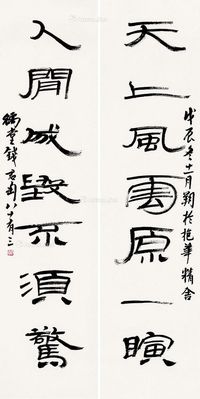 天上風雲原一瞚
戊辰冬十一月朔於抱華精舍
人閒城毀不須驚
豫堂錢君匋八十有三